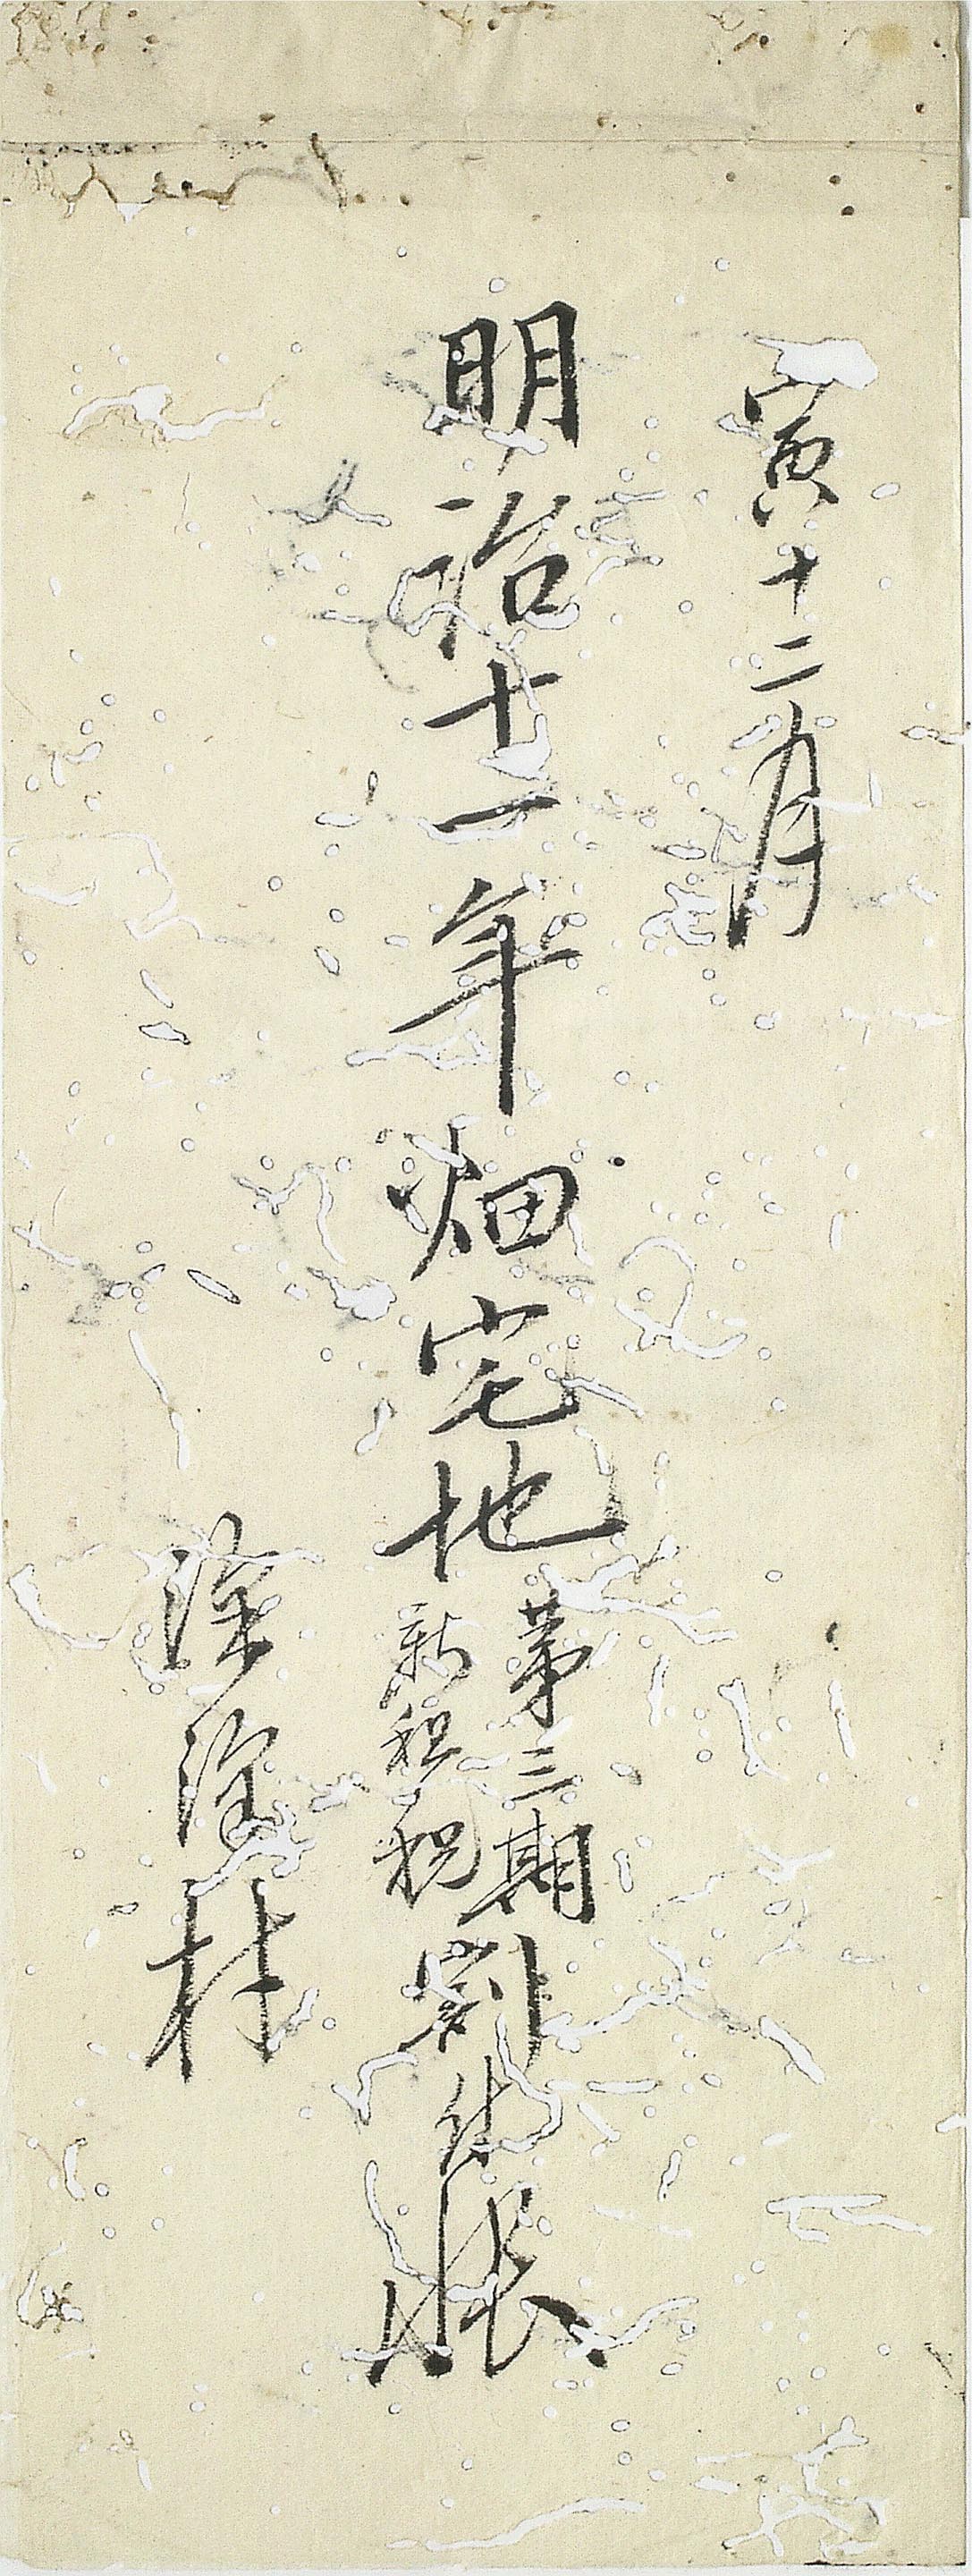 寅十二月
明治十一年畑宅地
第三期
新租税
割付帳
深淀村